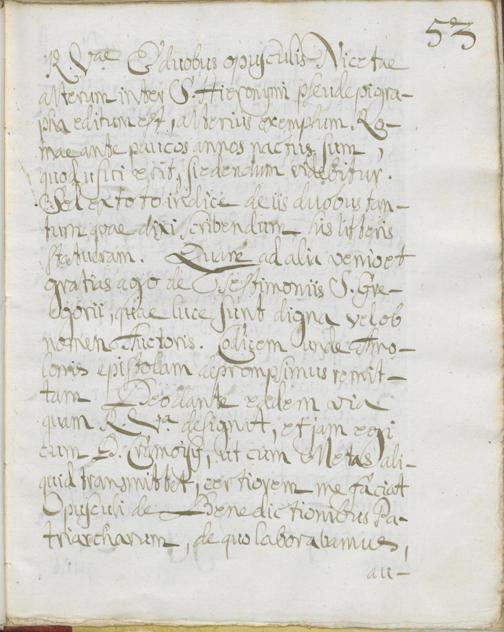 53
R. Vae. E duobus opusculis Nicetae
alterum inter S. Hieronymi pseudepigra-
pha editum est, alterius exemplum Ro-
mae ante paucos annos nactus sum,
quod usui erit, si edendum videbitur.
Sed ex toto indice de iis duobus tan-
tum quae dixi scribendum his litteris
statueram. Quare ad alia venio et
gratias ago de Testimoniis S. Gre-
gorii, quae luce sunt digna vel ob
nomen Auctoris. Codicem unde Amo-
lonis epistolam depromsimus remit-
tam Deo dante eadem via
quam R. Va designat, et jam egi
cum D. Cramoisy, ut cum Metas ali-
quid transmittet, certiorem me faciat
Opusculi de Benedictionibus Pa-
triarcharum, de quo laboravamus,
au-